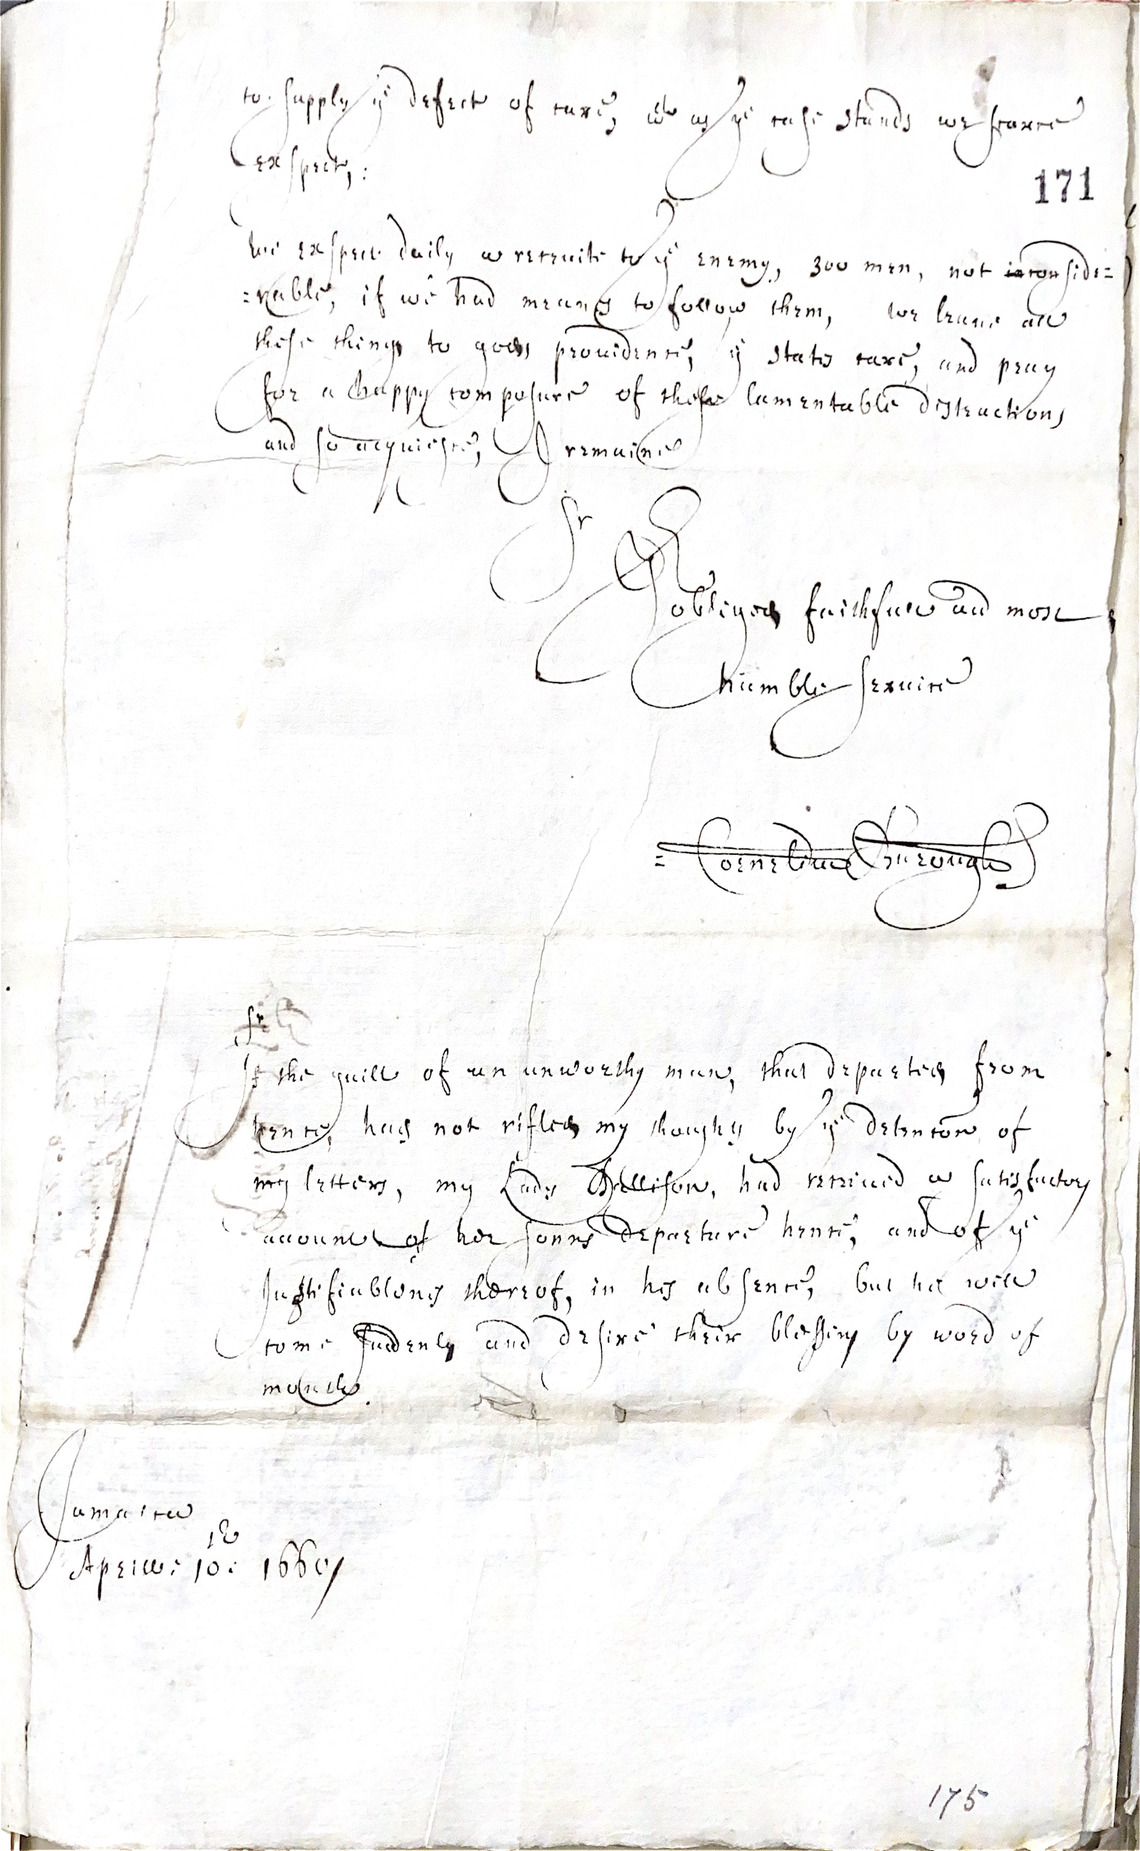 to supply ye defect of care, wch as ye case stands we scarce
expect,:
171
We expect daily a recruite to ye enemy, 300 men, not inconside=
=rable, if we had means to follow them, we leave all
these things to gods providence, ye states care, and pray
for a happy composure of these lamentable distractions
and so acquiesce, I remaine
Sr
obliged faithfull and most
humble service
= Cornelius Burough
Sr
If the guilt of an unworthy man, that departed from
hence, has not rifled my thoughts by ye detencon of
my letters, my Lady had received a satisfactory
account of her sonns departure hence, and of ye
Justifiablenes thereof, in his absence, but he will
come suddenly and desire their blessing by word of
mouth.
Jamaica
Aprill: 10: 1660/
175